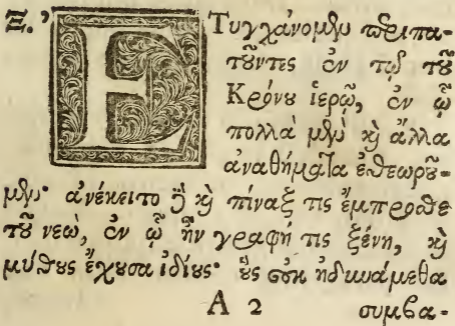 Ξ.' ΕΤυγχάνομεν περιπα-
τοῦντες ἐν τῷ τοῦ
Κρόνου ἱερῷ, ἐν ᾧ
πολλὰ μὲν καὶ ἄλλα
ἀναθήματα ἐθεωροῦ-
μεν· ἀνέκειτο δὲ καὶ πίναξ τις ἔμπροσθε
τοῦ νεὼ, ἐν ᾧ ἦν γραφή τις ξένη, καὶ
μύθους ἔχουσα ἰδίους· οὓς οὐκ ἠδυνάμεθα
Α 2 συμβα-